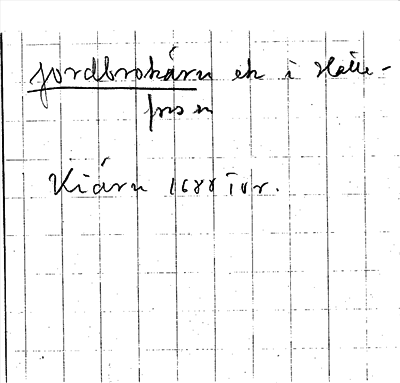 Jordbrokärn ek i Hälle-
fors sn
Kiärn 1688